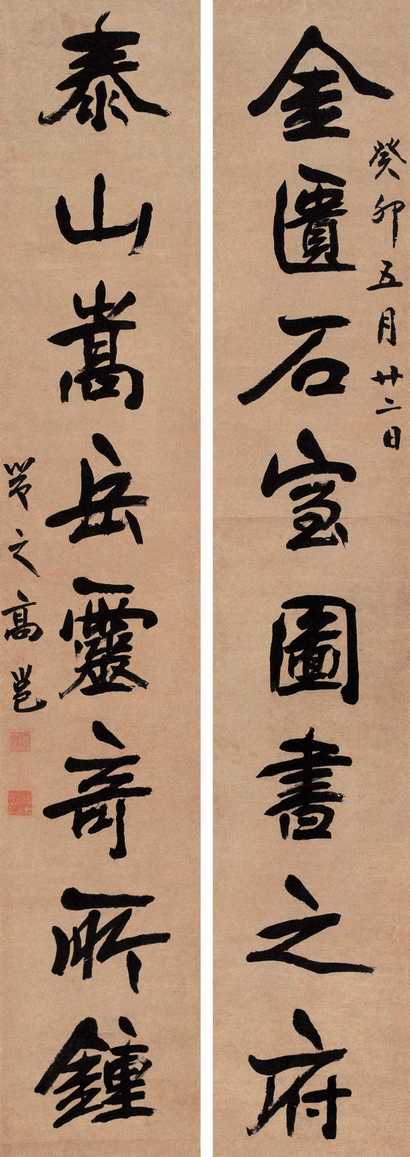 癸卯五月廿二日
金匱石室圖書之府
泰山嵩岳靈奇所鍾
之高邕